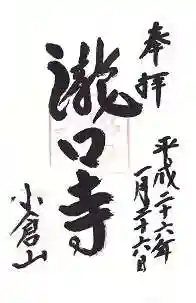 奉拝
平成二十六年
一月二十六日
滝口寺
小倉山